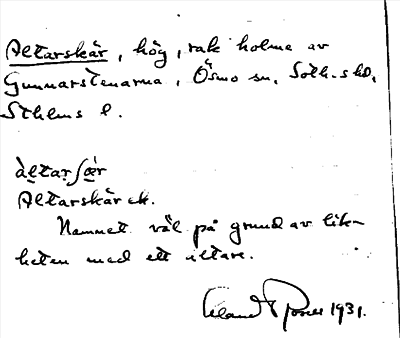 Altarskär, hög, rak holme av
Gunnarstenarna, Ösmo sn, Soth. shd,
Sthlms l.
àltarʃæ̀r
Altarskär ek.
Namnet väl på grund av lik-
heten med ett altare.
1931.